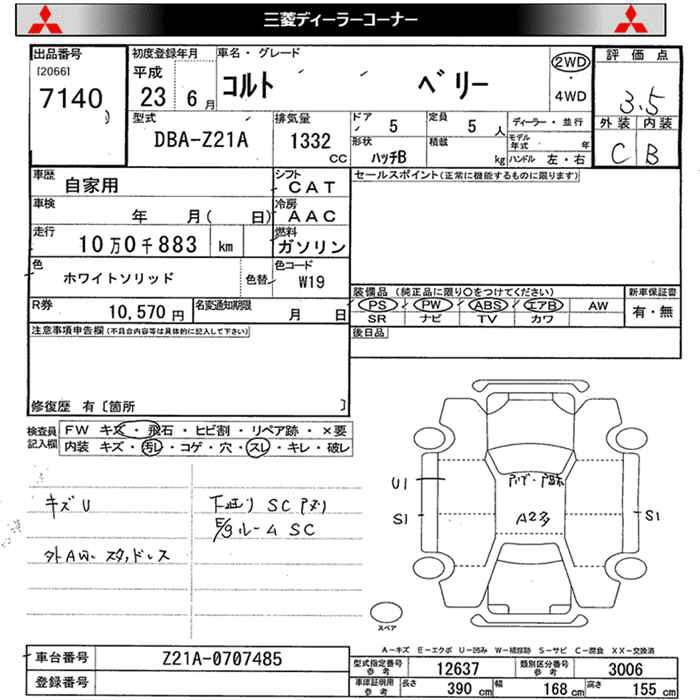 三菱ディーラーコーナー
出品番号
[2066]
7140
初度登録年月
平成
23 6月
車名・グレード
コルト ベリー
2WD
・
4WD
評価点
3.5
外装 内装
C B
型式
DBA-Z21A
排気量
1332
CC
ドア
5
定員
5 人
形状
ハッチB
積載
kg
ディーラー・並行
モデル
年式 年
ハンドル 左・右
車歴
自家用
シフト
CAT
車検
年 月( 日)
冷房
AAC
走行
10万0千883 km
燃料
ガソリン
セールスポイント(正常に機能するものに限ります)
色
ホワイトソリッド
色替
色コード
W19
R券
10,570円
名変通知期限
月 日
装備品 (純正品に限り○をつけてください)
PS PW ABS エアB AW
SR ナビ TV カワ
新車保証書
有・無
注意事項申告欄(不具合内容等は具体的に記入して下さい)
後日品
修復歴 有〔箇所 〕
検査員
記入欄
FW キズ・飛石・ヒビ割・リペア跡・×要
内装 キズ・汚レ・コゲ・穴・スレ・キレ・破レ
キズU
外AW・スタッドレス
下廻り SC アメリ
E/gルーム SC
U1
S1
A2多
S1
スペア
A-キズ E-エクボ U-凹み W-補修跡 S-サビ C-腐食 XX-交換済
車台番号
Z21A-0707485
登録番号
型式指定番号
参考
12637
類別区分番号
参考
3006
車庫証明用
参考
長さ
390 cm
幅
168 cm
高さ
155 cm